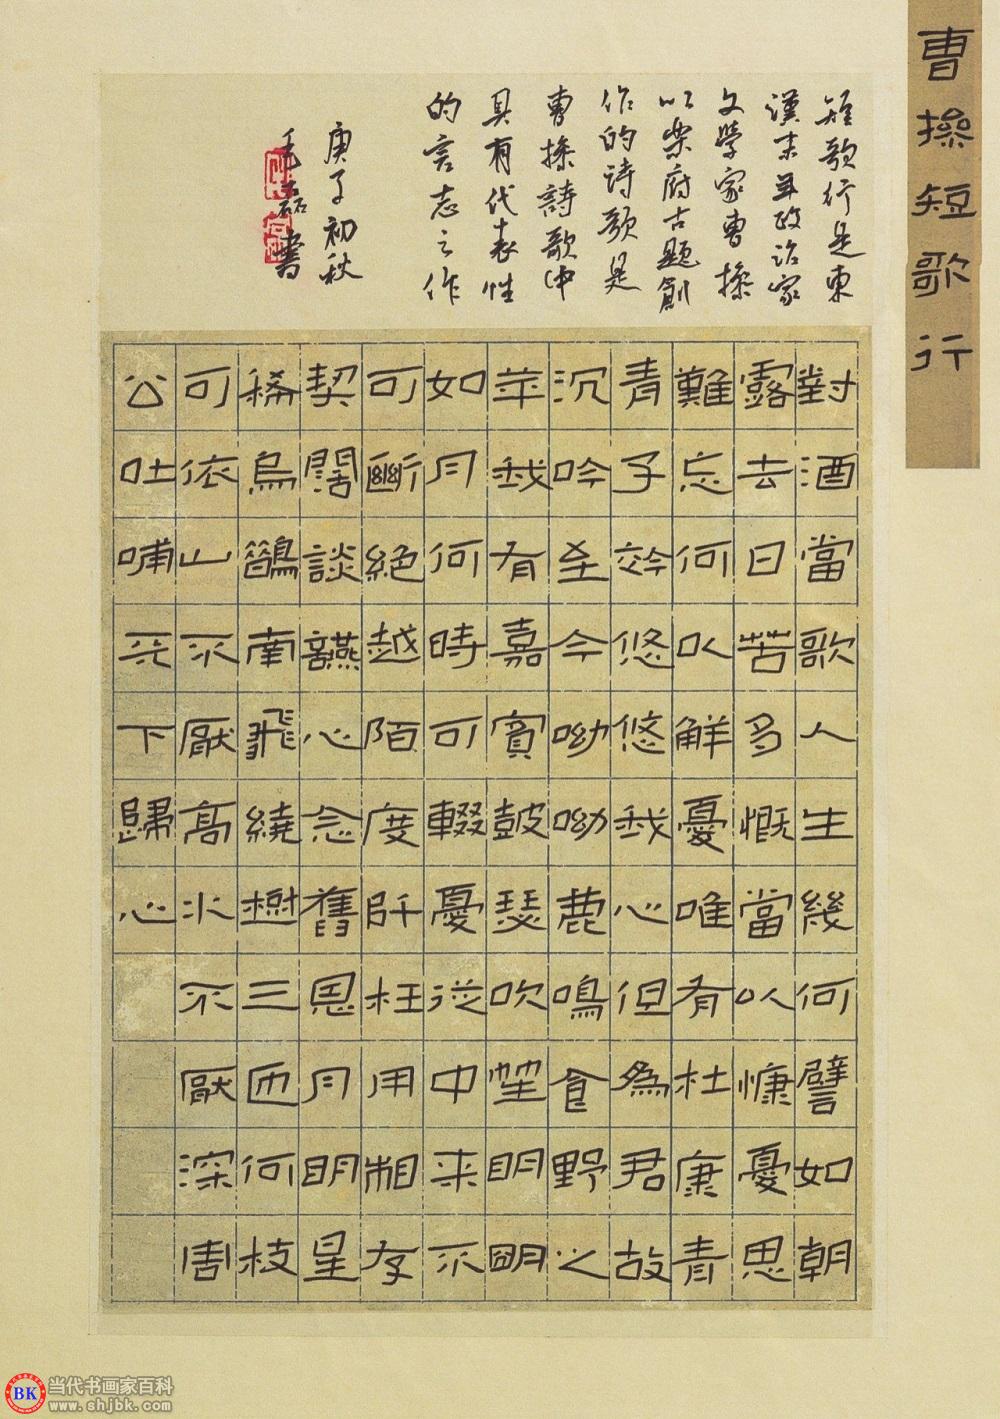 曹操短歌行
短歌行是東
漢末年政治家
文學家曹操
以樂府古題創
作的诗歌是
曹操詩歌中
具有代表性
的言志之作
庚子初秋
毛磊書
對酒當歌人生幾何譬如朝
露去日苦多慨當以慷憂思
難忘何以觧憂唯有杜康青
青子衿悠悠我心但為君故
沉吟至今呦呦鹿鳴食野之
苹我有嘉賓鼓瑟吹笙明明
如月何時可輟憂從中来不
可斷絕越陌度阡枉用相存
契闊談讌心念舊恩月明星
稀烏鵲南飛繞樹三匝何枝
可依山不厭高水不厭深周
公吐哺天下歸心
BK 当代书画家百科
www.shjbk.com